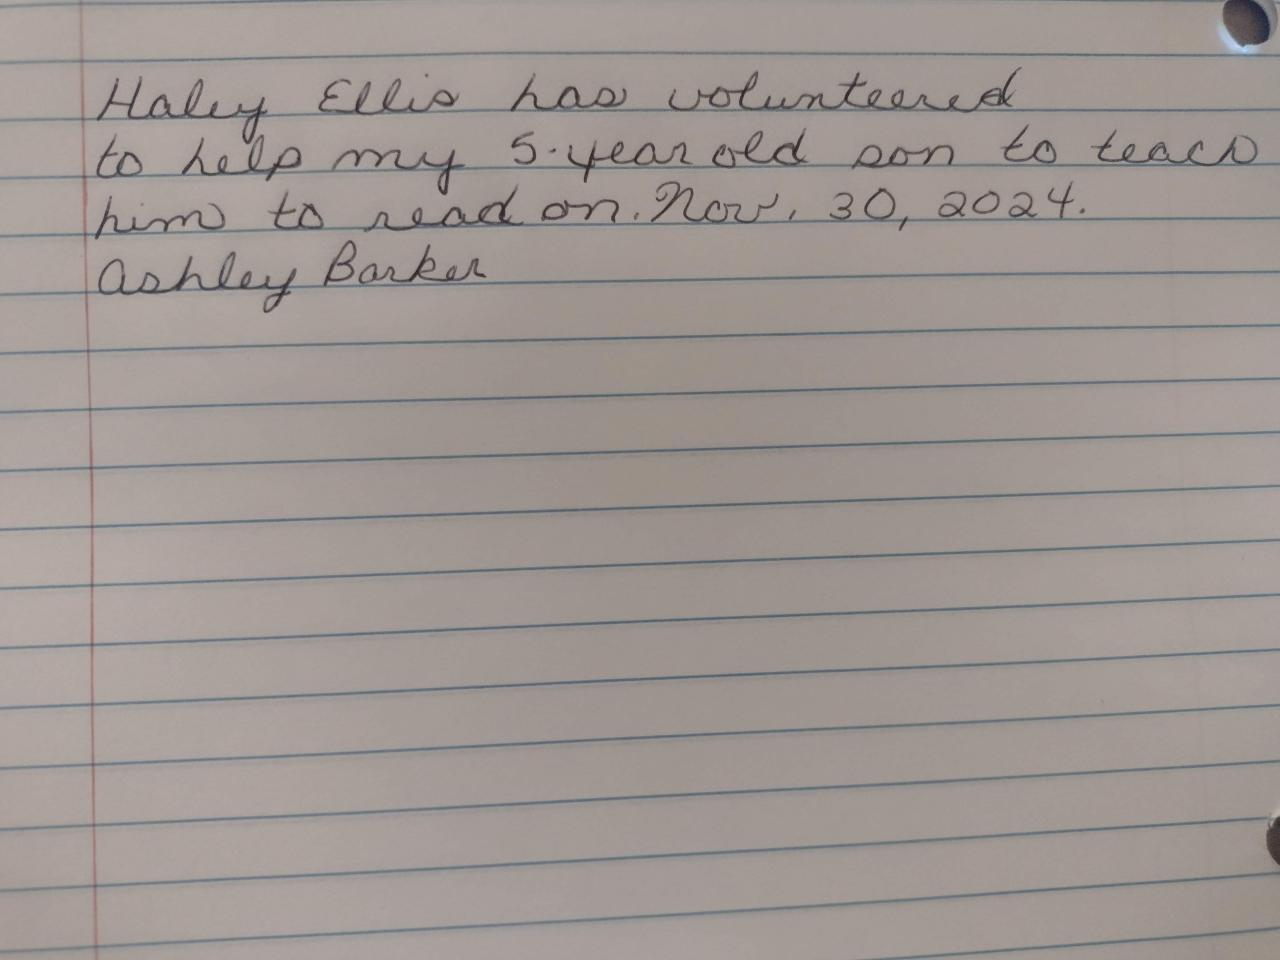 Haley Ellis has volunteered
to help my 5-year old son to teach
him to read on. Nov. 30, 2024.
Ashley Barker